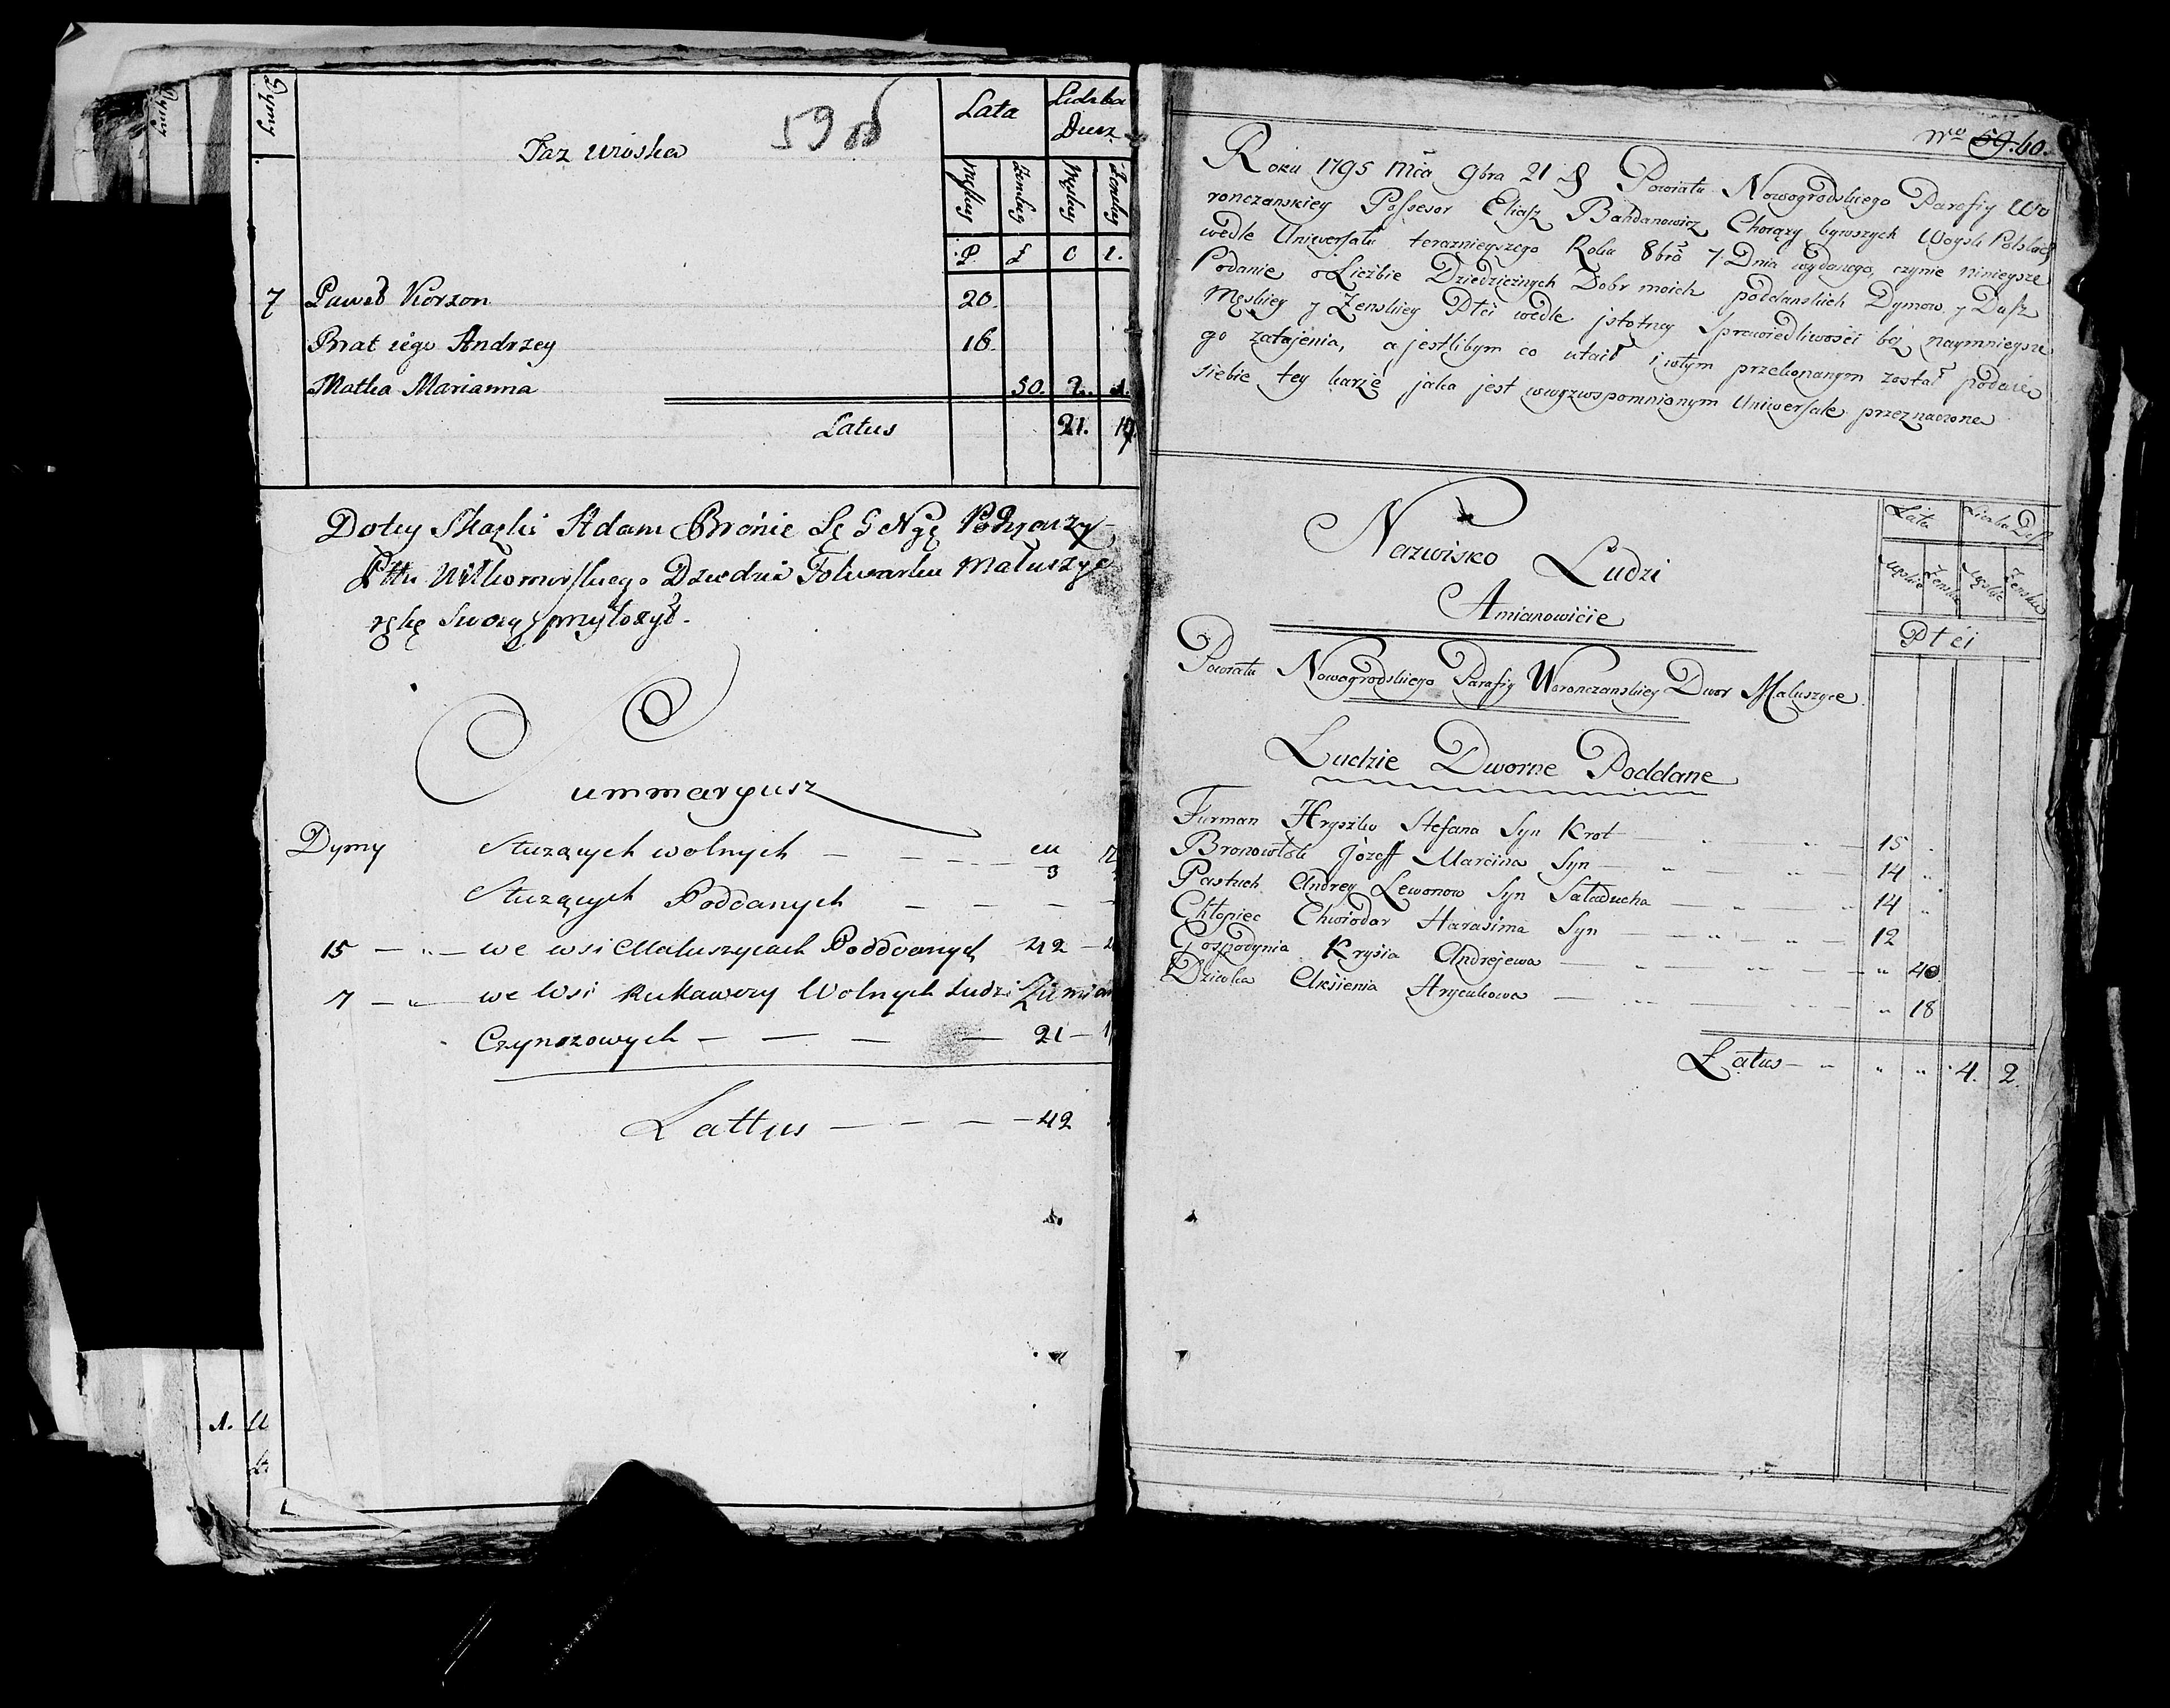 Dymy
Lata
Liczba
Dusz
59
Męskiey
Żenskiey
Męskiey
Żenskiey
P. Ł C I.
7 Paweł Korzon 20.
Brat iego Andrzey 16.
Matka Marianna 50. 2. 1.
Latus 21. 19.
Do tey Skazki Adam Bronic
Pttu Wiłkomirskiego Dziedzic Folwarku Maluszyc
rękę swoią przyłożył.
Summaryusz
Dymy Służących wolnych
3
Służących Poddanych
15 we wsi Maluszycach Poddanych 42
7 we Wsi Rukawczy Wolnych Ludzi Ziemian
Czynszowych 21
Lattus 42
1.
Nro 59. 60.
Roku 1795 Mca 9bra 21 D Powiatu Nowogrodskiego Parafiy Wo
ronczanskiey Possesor Eliasz Bahdanowicz Chorąży bywszych Woysk Polskich
wedle Uniwersału terazniejszego Roku 8bra 7 Dnia wydanego, czynie ninieysze
Podanie o Liczbie Dziedzicznych Dobr moich poddanskich Dymow y Dusz
Męskiey y Żenskiey Płci wedle jstotney Sprawiedliwości bez naymnieysze
go zatajenia, a jeslibym co utaił i wtym przekonanym został podaie
siebie tey karze jaka jest wwyzwspomnionym Uniwersale przeznaczona
Nazwisko Ludzi
Amianowicie
Lata
Liczba Dusz
Męskie
Żenskie
Męskie
Żenskie
Płci
Powiatu Nowogrodskiego Parafiy Woronczanskiey Dwor Maluszyce
Ludzie Dworne Poddane
Furman Hryszko Stefana Syn Krot 15
Bronowłok Jozeff Marcina Syn 14
Pastuch Andrey Lewonow Syn Saładucha 14
Chłopiec Chwiodor Harasima Syn 12
Gospodynia Krysia Andrejewa 40
Dziewka Aksienia Hrycukowa 18
Latus 4. 2.